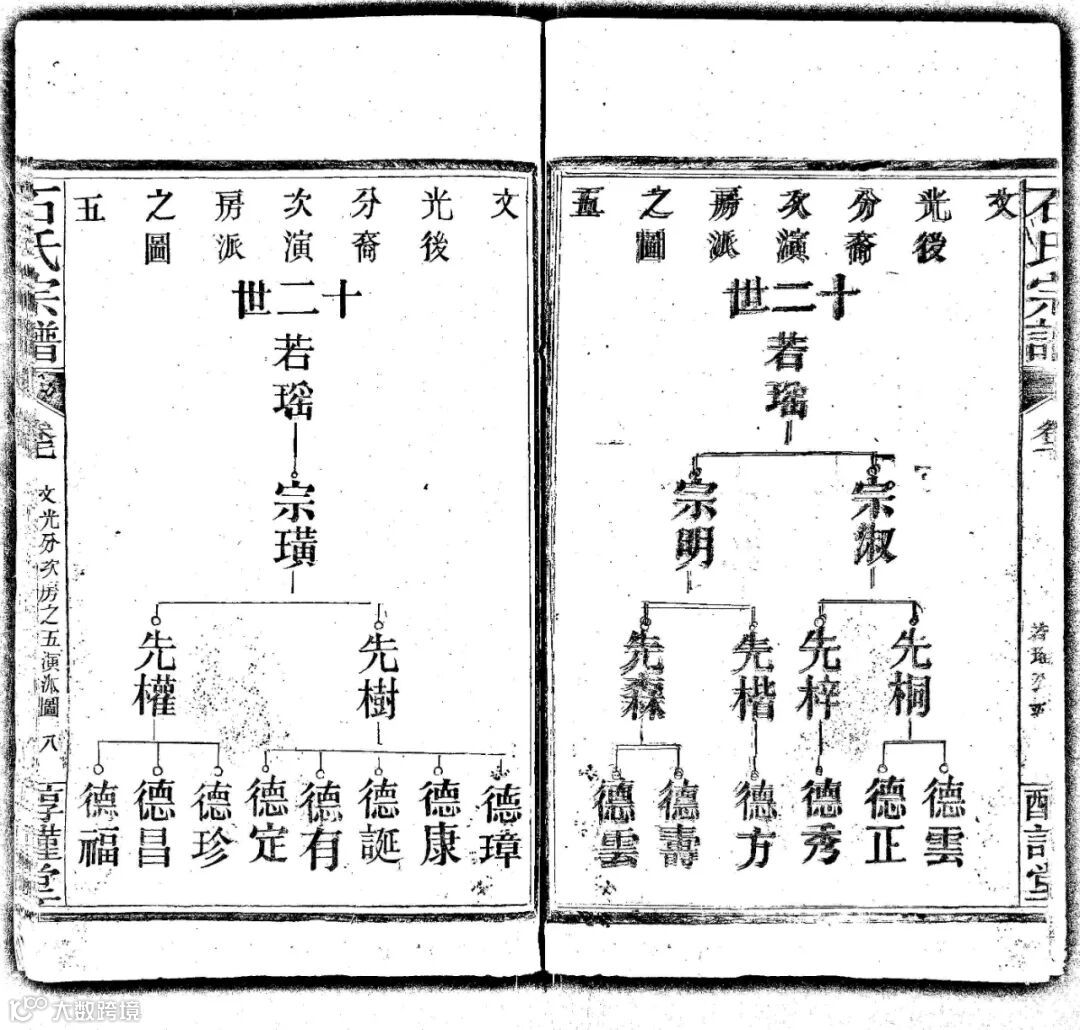 文光後分裔次演房派之圖五
十二世
若瑶
宗淑
宗明
先桐
先梓
先楷
先森
德雲
德正
德秀
德方
德壽
德雲
文光後分裔次演房派之圖五
十二世
若瑶
宗璜
先樹
先權
德璋
德康
德誕
德有
德定
德珍
德昌
德福
石氏宗譜
文光分次房之五演派圖
八
大数跨境